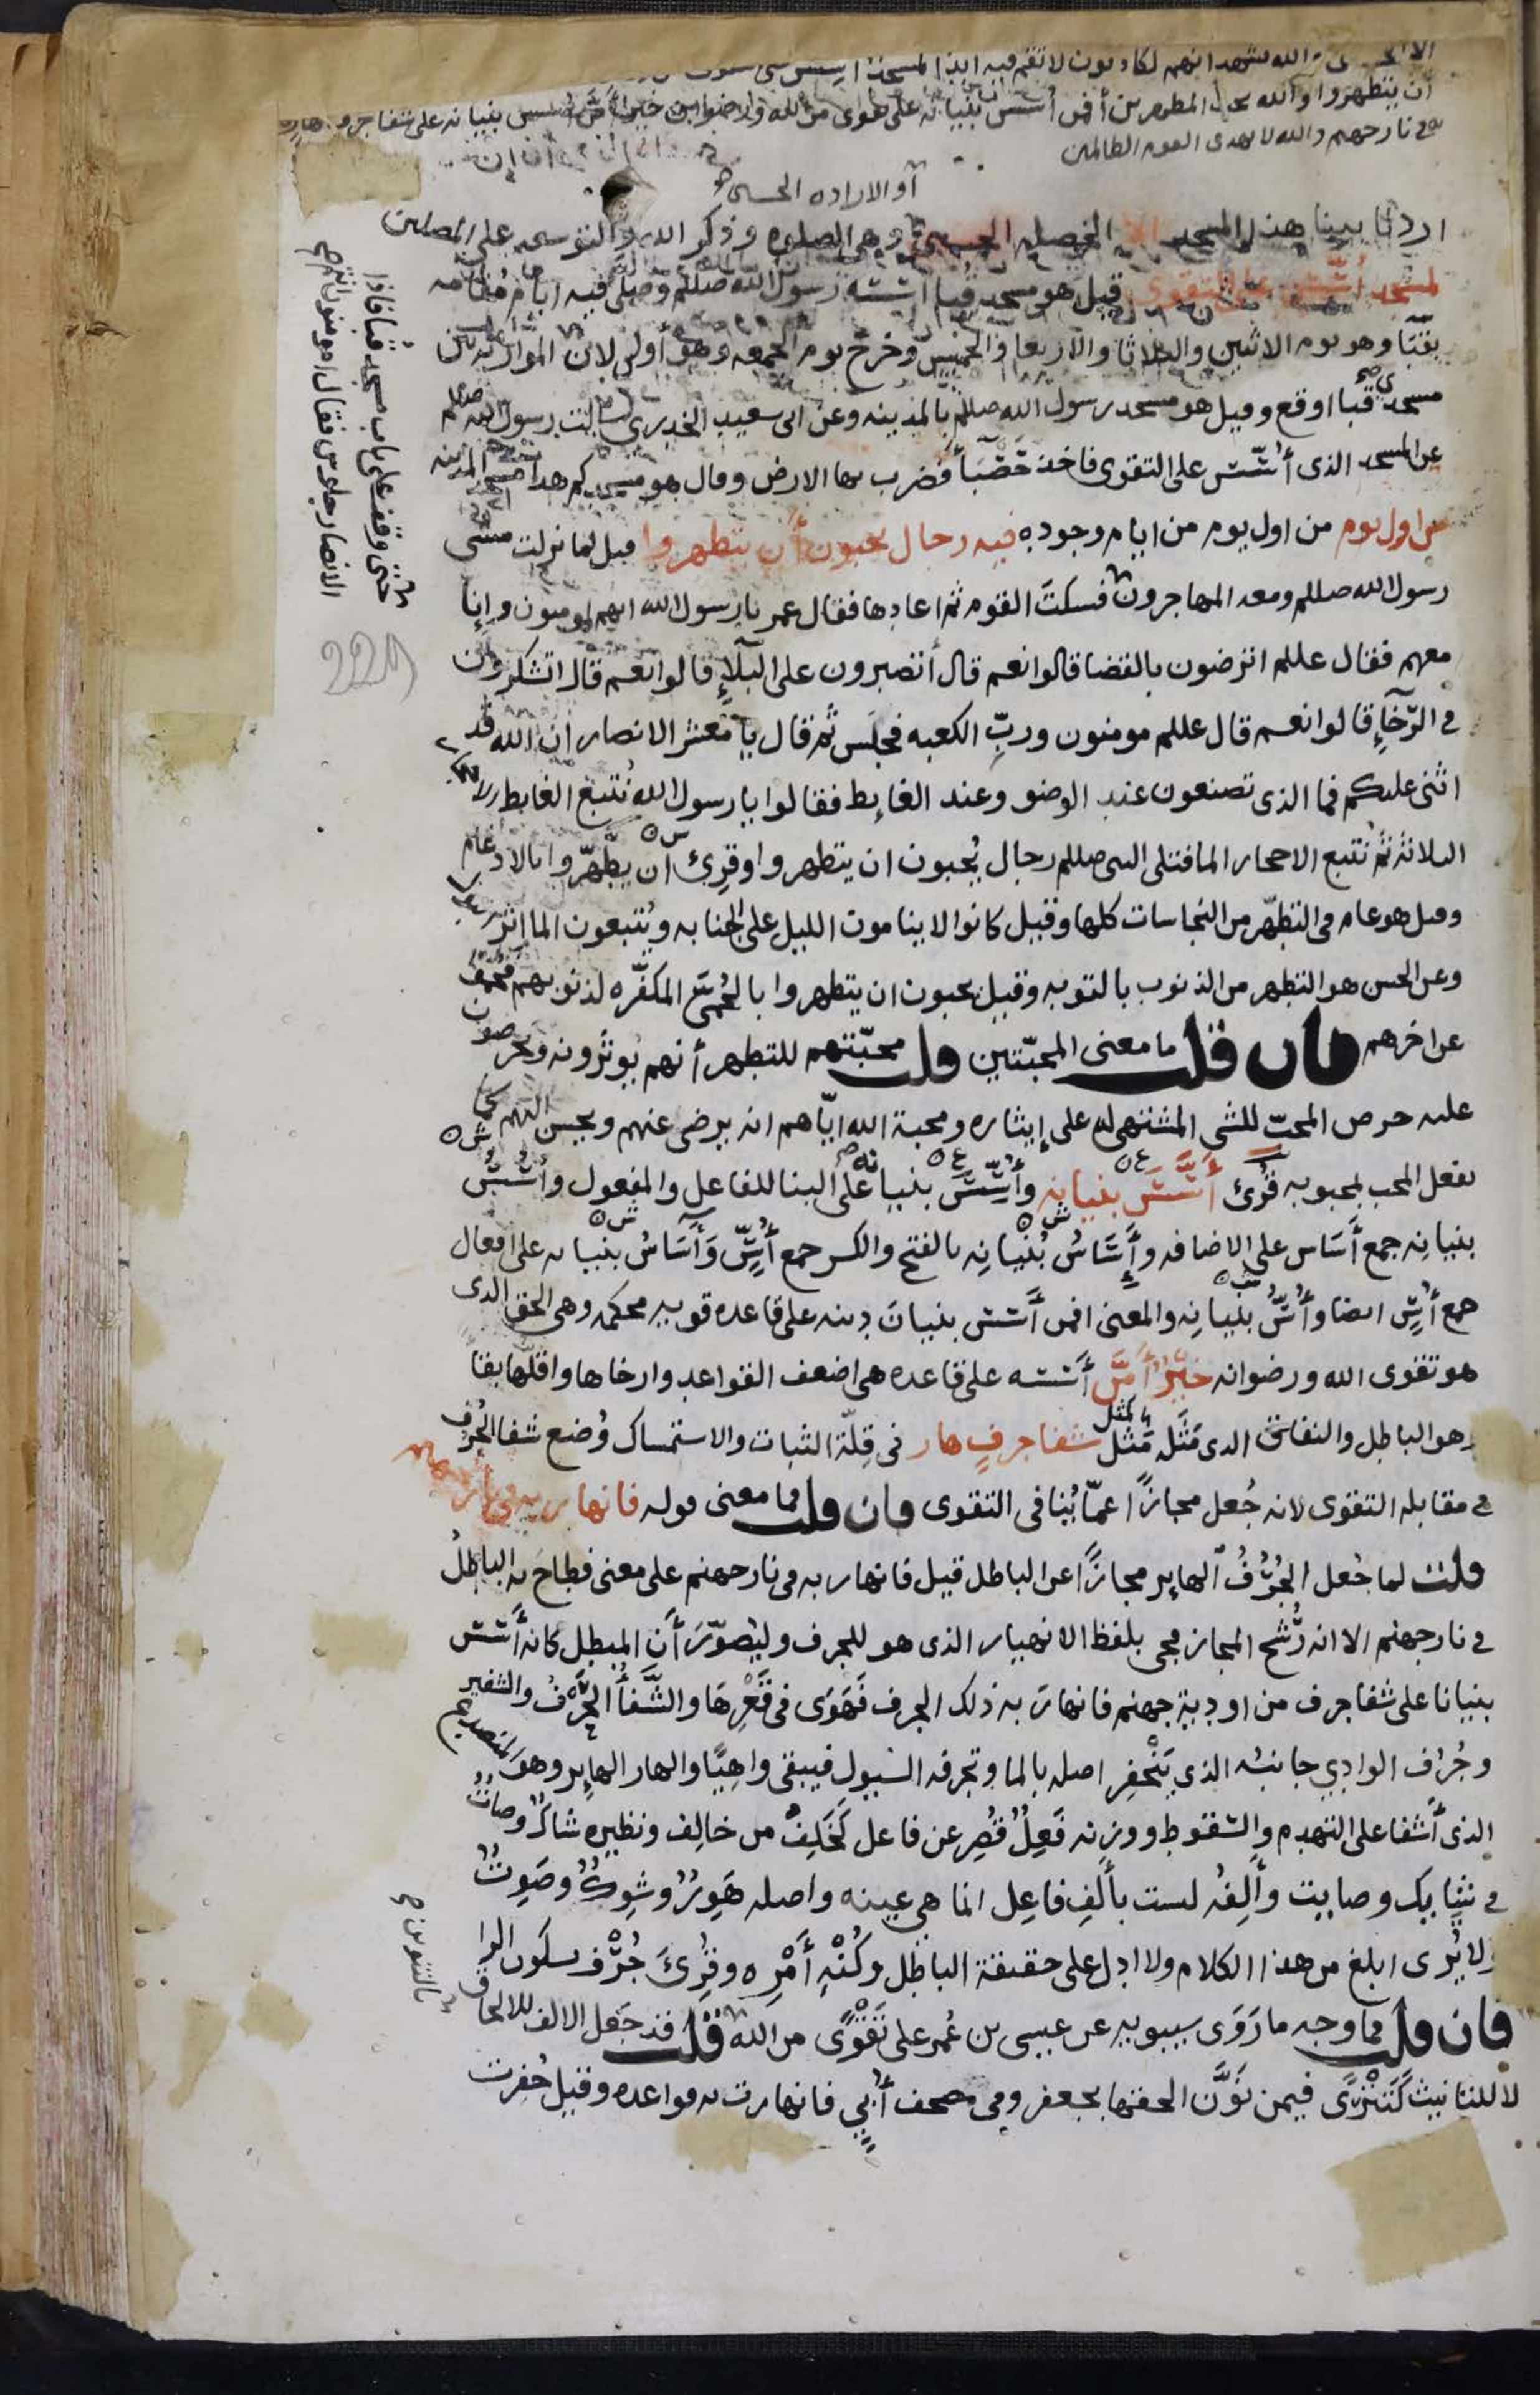 والله يشهد انهم لكاذبون لا تقم فيه ابدا لمسجد اسس على
أن يتطهروا والله يحب المطهرين أفمن أسس بنيانه على تقوى من الله ورضوان خير أم من أسس بنيانه على شفا جرف هار
في نار جهنم والله لا يهدى القوم الظالمين
أو الارادة الحسنى
اردنا ببنا هذا المسجد الا الخصلة الحسنى وهى الصلوة وذكر الله والتوسعه على المصلين
لمسجد أسس على التقوى قيل هو مسجد قبا اسّسه رسول الله صللم وصلى فيه ايام مقامه
بقبا وهو يوم الاثنين والثلاثا والاربعا والخميس وخرج يوم الجمعه وهو أولى لان الموازنه بين
مسجدى قبا اوقع وقيل هو مسجد رسول الله صللم بالمدينه وعن ابى سعيد الخدرى سالت رسول الله صللم
عن المسجد الذى أسّس على التقوى فاخذ حَصْبَا فضرب بها الارض وقال هو مسجدكم هذا مسجد المدينه
من اول يوم من اول يوم من ايام وجوده فيه رجال يحبون أن يتطهروا قيل لما نزلت مشى
رسول الله صللم ومعه المهاجرون فسكت القوم ثم اعادها فقال عمر يا رسول الله انهم لمومنون وإنا
معهم فقال عللم اترضون بالقضا قالوا نعم قال أتصبرون على البلاء قالوا نعم قال اتشكرون
في الرّخاءِ قالوا نعم قال عللم مومنون وربِّ الكعبه فجلَس ثم قال يا معشر الانصار ان الله قد
اثنى عليكم فما الذى تصنعون عند الوضو وعند الغايط فقالوا يا رسول الله نُتبع الغايط الاحجار
الثلاثة ثم نُتبع الاحجار الما فتلى النبى صللم رجال يُحبون ان يتطهروا وقرئ ان يطّهّروا بالادغام
وقيل هو عام فى التطهّر من النجاسات كلها وقيل كانوا لا ينامون الليل على الجنابه ويُتبعون الما اثر البول
وعن الحسن هو التطهر من الذنوب بالتوبه وقيل يحبون ان يتطهروا بالحُمّى المكفّره لذنوبهم فحمّوا
عن اخرهم فان قلت ما معنى المحبّتين قلت محبّتهم للتطهر أنهم يوثرونه ويحرصون
عليه حرص المحبّ للشى المشتهى له على إيثاره ومحبة الله ايّاهم انه يرضى عنهم ويحسن اليهم كما
يفعل المحب لمحبوبه قُرئ أَسَّسَ بنيانه وأُسِّسَ بنيانه على البنا للفاعل والمفعول وأُسُسُ
بنيانِه جمع أَسَاس على الاضافه وأَسَاسُ بُنْيانِه بالفتح والكسر جمع أُسٍّ وَآسَاسُ بنيانه على افعال
جمع أُسٍّ ايضا وأُسُّ بنْيانِه والمعنى افمن أَسّس بنيانَ دينه على قاعده قويه محكمه وهى الحق الذى
هو تقوى الله ورضوانه خَيْرٌ أَمْ مَّن أَسّسه على قاعده هى اضعف القواعد وارخاها واقلّها بقا
وهو الباطل والنفاق الذى مَثَله مَثَل كمثل شفا جرفٍ هار فى قِلّة الثبات والاستمساك وُضع شفا الجُرُف
في مقابله التقوى لانه جُعل مجازًا عمّا يُنافى التقوى فان قلت فما معنى قوله فانهار به فى نار جهنم
قلت لما جُعل الجُرُفُ الهايِر مجازًا عن الباطل قيل فانهار به فى نار جهنم على معنى فطاح به الباطلُ
في نار جهنم الا انه رُشّح المجاز فجى بلفظ الانهيار الذى هو للجرف وليُصوّرَ أَن المبطل كانه أَسّس
بنيانا على شفا جرف من اودية جهنم فانهارَ به ذلك الجرف فَهَوَى فى قَعْرِهَا والشَّفَا الحَرْفُ والشفير
وجُرُف الوادى جانبُه الذى يَتَحْفِر اصلُه بالما وتجرفه السّيول فيبقى واهِيًا والهار الهايِر وهو المتصدع
الذى أَشفا على التهدم والسّقوط ووزنه فَعِلٌ قُصِر عن فاعل كَخَلِفٌ من خالِف ونظيره شاكٌ وصاتٌ
في شايك وصايت وأَلِفُه ليست بأَلِفِ فاعِل انما هى عينه واصله هَوِرٌ وشَوِكٌ وصَوِتٌ
ولا يُرى ابلغ من هذا الكلام ولا ادل على حقيقة الباطل وكُنْهِ أَمْرِه وقُرِئَ جُرْف بسكون الرا
فان قلت فما وجه ما رَوَى سيبويه عن عيسى بن عُمر على تَقْوًى من الله قلت قد جَعل الالف للالحاق
لا للتانيث كَتَتْرًى فيمن نَوَّنَ الحقها بجعفر وفى مصحف أُبىّ فانهارت به قواعده وقيل حُفِرت
حتى وقف على باب مسجد قبا فاذا
الانصار جلوس فقال امومنون انتم
بالتنوين